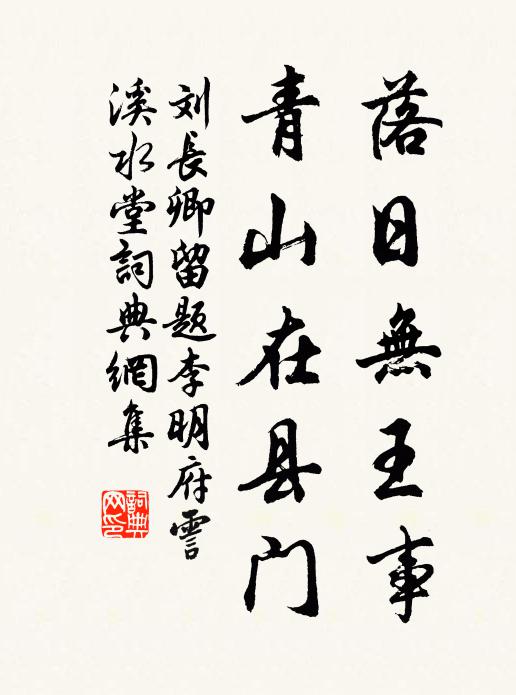 落日無王事
青山在县门
刘長卿留题李明府霅
溪水堂詞典網集
詞典
网印